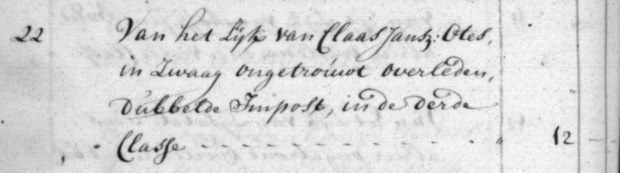 22 Van het Lijk van Claas Jansz: Otes,
in Zwaag ongetrouwt overleden,
Dubbelde Impost, in de derde
Classe - - - - - - - - - - - " 12 -